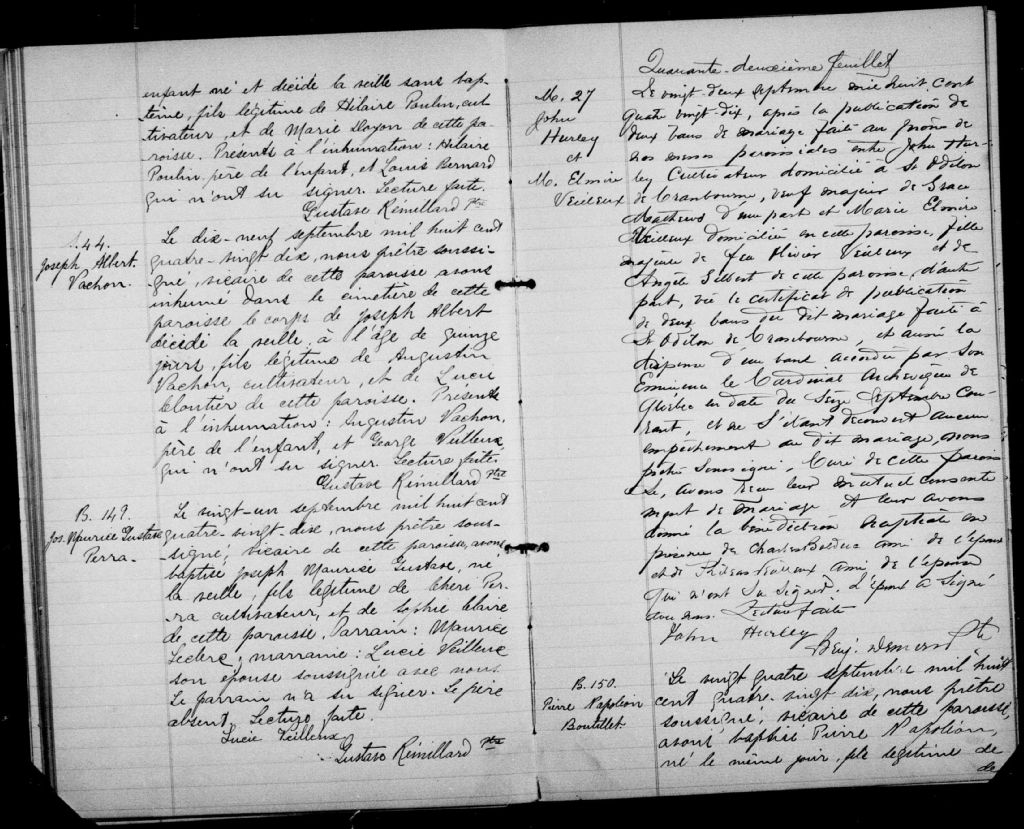 enfant né et décédé la veille sans bap-
tême, fils légitime de Hilaire Poulin, cul-
tivateur, et de Marie Doyon de cette pa-
roisse. Présents à l'inhumation: Hilaire
Poulin père de l'enfant, et Louis Bernard
qui n'ont su signer. Lecture faite.
Gustave Rémillard Ptre
S. 44.
Joseph Albert
Vachon.
Le dix-neuf septembre mil huit cent
quatre-vingt dix, nous prêtre soussi-
gné, vicaire de cette paroisse avons
inhumé dans le cimetière de cette
paroisse le corps de Joseph Albert
décédé la veille à l'âge de quinze
jours, fils légitime de Augustin
Vachon, cultivateur, et de Lucie
Cloutier de cette paroisse. Présents
à l'inhumation: Augustin Vachon,
père de l'enfant, et George Veilleux
qui n'ont su signer. Lecture faite.
Gustave Rémillard Ptre
B. 149.
Jos. Maurice Gustave
Perra.
Le vingt-un septembre mil huit cent
quatre-vingt-dix, nous prêtre sous-
signé, vicaire de cette paroisse, avons
baptisé Joseph Maurice Gustave, né
la veille, fils légitime de Chéri Per-
ra cultivateur, et de Sophie Claire
de cette paroisse. Parrain: Maurice
Leclerc, marraine: Lucie Veilleux
son épouse soussignée avec nous.
Le parrain n'a su signer. Le père
absent. Lecture faite.
Lucie Veilleux
Gustave Rémillard Ptre
Quarante-deuxième feuillet
M. 27
John
Hurley
et
M. Elmire
Veilleux
Le vingt-deux septembre mil huit cent
quatre vingt-dix, après la publication de
deux bans de mariage faite au prône de
nos messes paroissiales entre John Hur-
ley Cultivateur domicilié à St Odilon
de Cranbourne, veuf majeur de Grace
Mathews d'une part et Marie Elmire
Veilleux domiciliée en cette paroisse, fille
majeure de feu Olivier Veilleux et de
Angèle Gilbert de cette paroisse, d'autre
part, vu le certificat de publication
de deux bans du dit mariage faite à
St Odilon de Cranbourne, et aussi la
dispense d'un banc accordée par Son
Eminence le Cardinal Archevêque de
Québec en date du Seize Septembre Cou-
rant, et ne s'étant découvert aucun
empêchement au dit mariage, nous
prêtre Soussigné, Curé de cette parois-
se, avons reçu leur mutuel consente-
ment de mariage et leur avons
donné la bénédiction nuptiale en
présence de Charles Bolduc ami de l'époux
et de Veilleux ami de l'épouse
qui n'ont su signer. L'époux a Signé
avec nous. Lecture faite
John Hurley
Benj. Demers Ptre
B. 150.
Pierre Napoléon
Boutillet.
Le vingt quatre septembre mil huit
cent quatre-vingt dix, nous prêtre
soussigné, vicaire de cette paroisse,
avons baptisé Pierre Napoléon,
né le même jour, fils légitime de
de